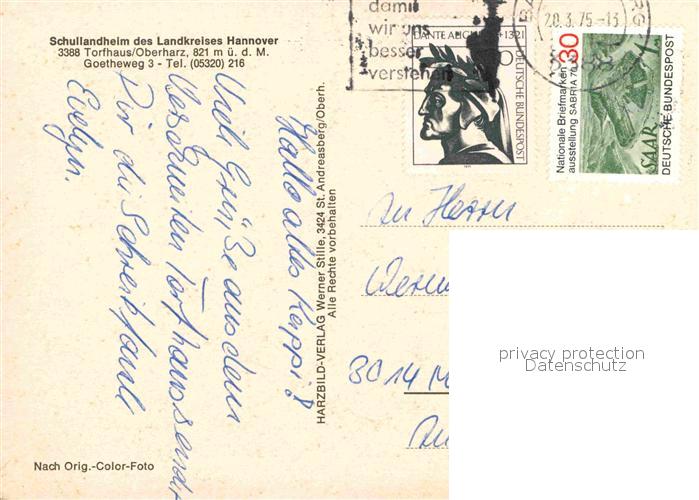 Schullandheim des Landkreises Hannover
3388 Torfhaus/Oberharz, 821 m ü. d. M.
Goetheweg 3 - Tel. (05320) 216
Hallo altes Keppi!
Viele Grüße aus dem
verschneiten Torfhaus sendet
Dir die Schreibfaule
Evelyn.
Nach Orig.-Color-Foto
HARZBILD-VERLAG Werner Stille, 3424 St. Andreasberg/Oberh.
Alle Rechte vorbehalten
damit
wir uns
besser
verstehen
20.3.75-13
DANTE ALIGHIERI +1321
DEUTSCHE BUNDESPOST
30
Nationale Briefmarken
ausstellung SABRIA 70
SAAR
DEUTSCHE BUNDESPOST
An Herrn
3014
privacy protection
Datenschutz